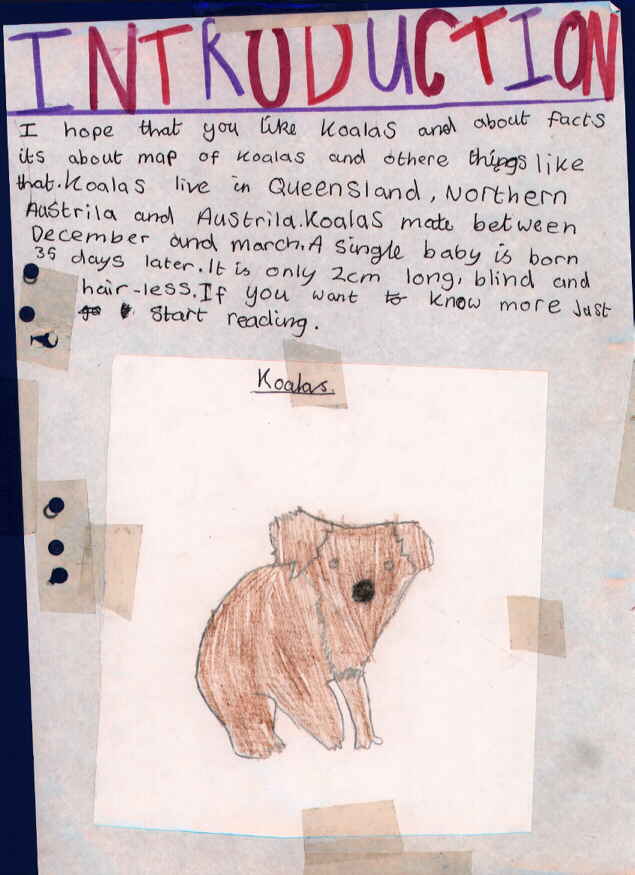 INTRODUCTION
I hope that you like Koalas and about facts
its about map of Koalas and othere things like
that. Koalas live in Queensland, Northern
Austrila and Austrila. Koalas mate between
December and march. A single baby is born
35 days later. It is only 2cm long, blind and
hair-less. If you want to know more Just
start reading.
Koalas.